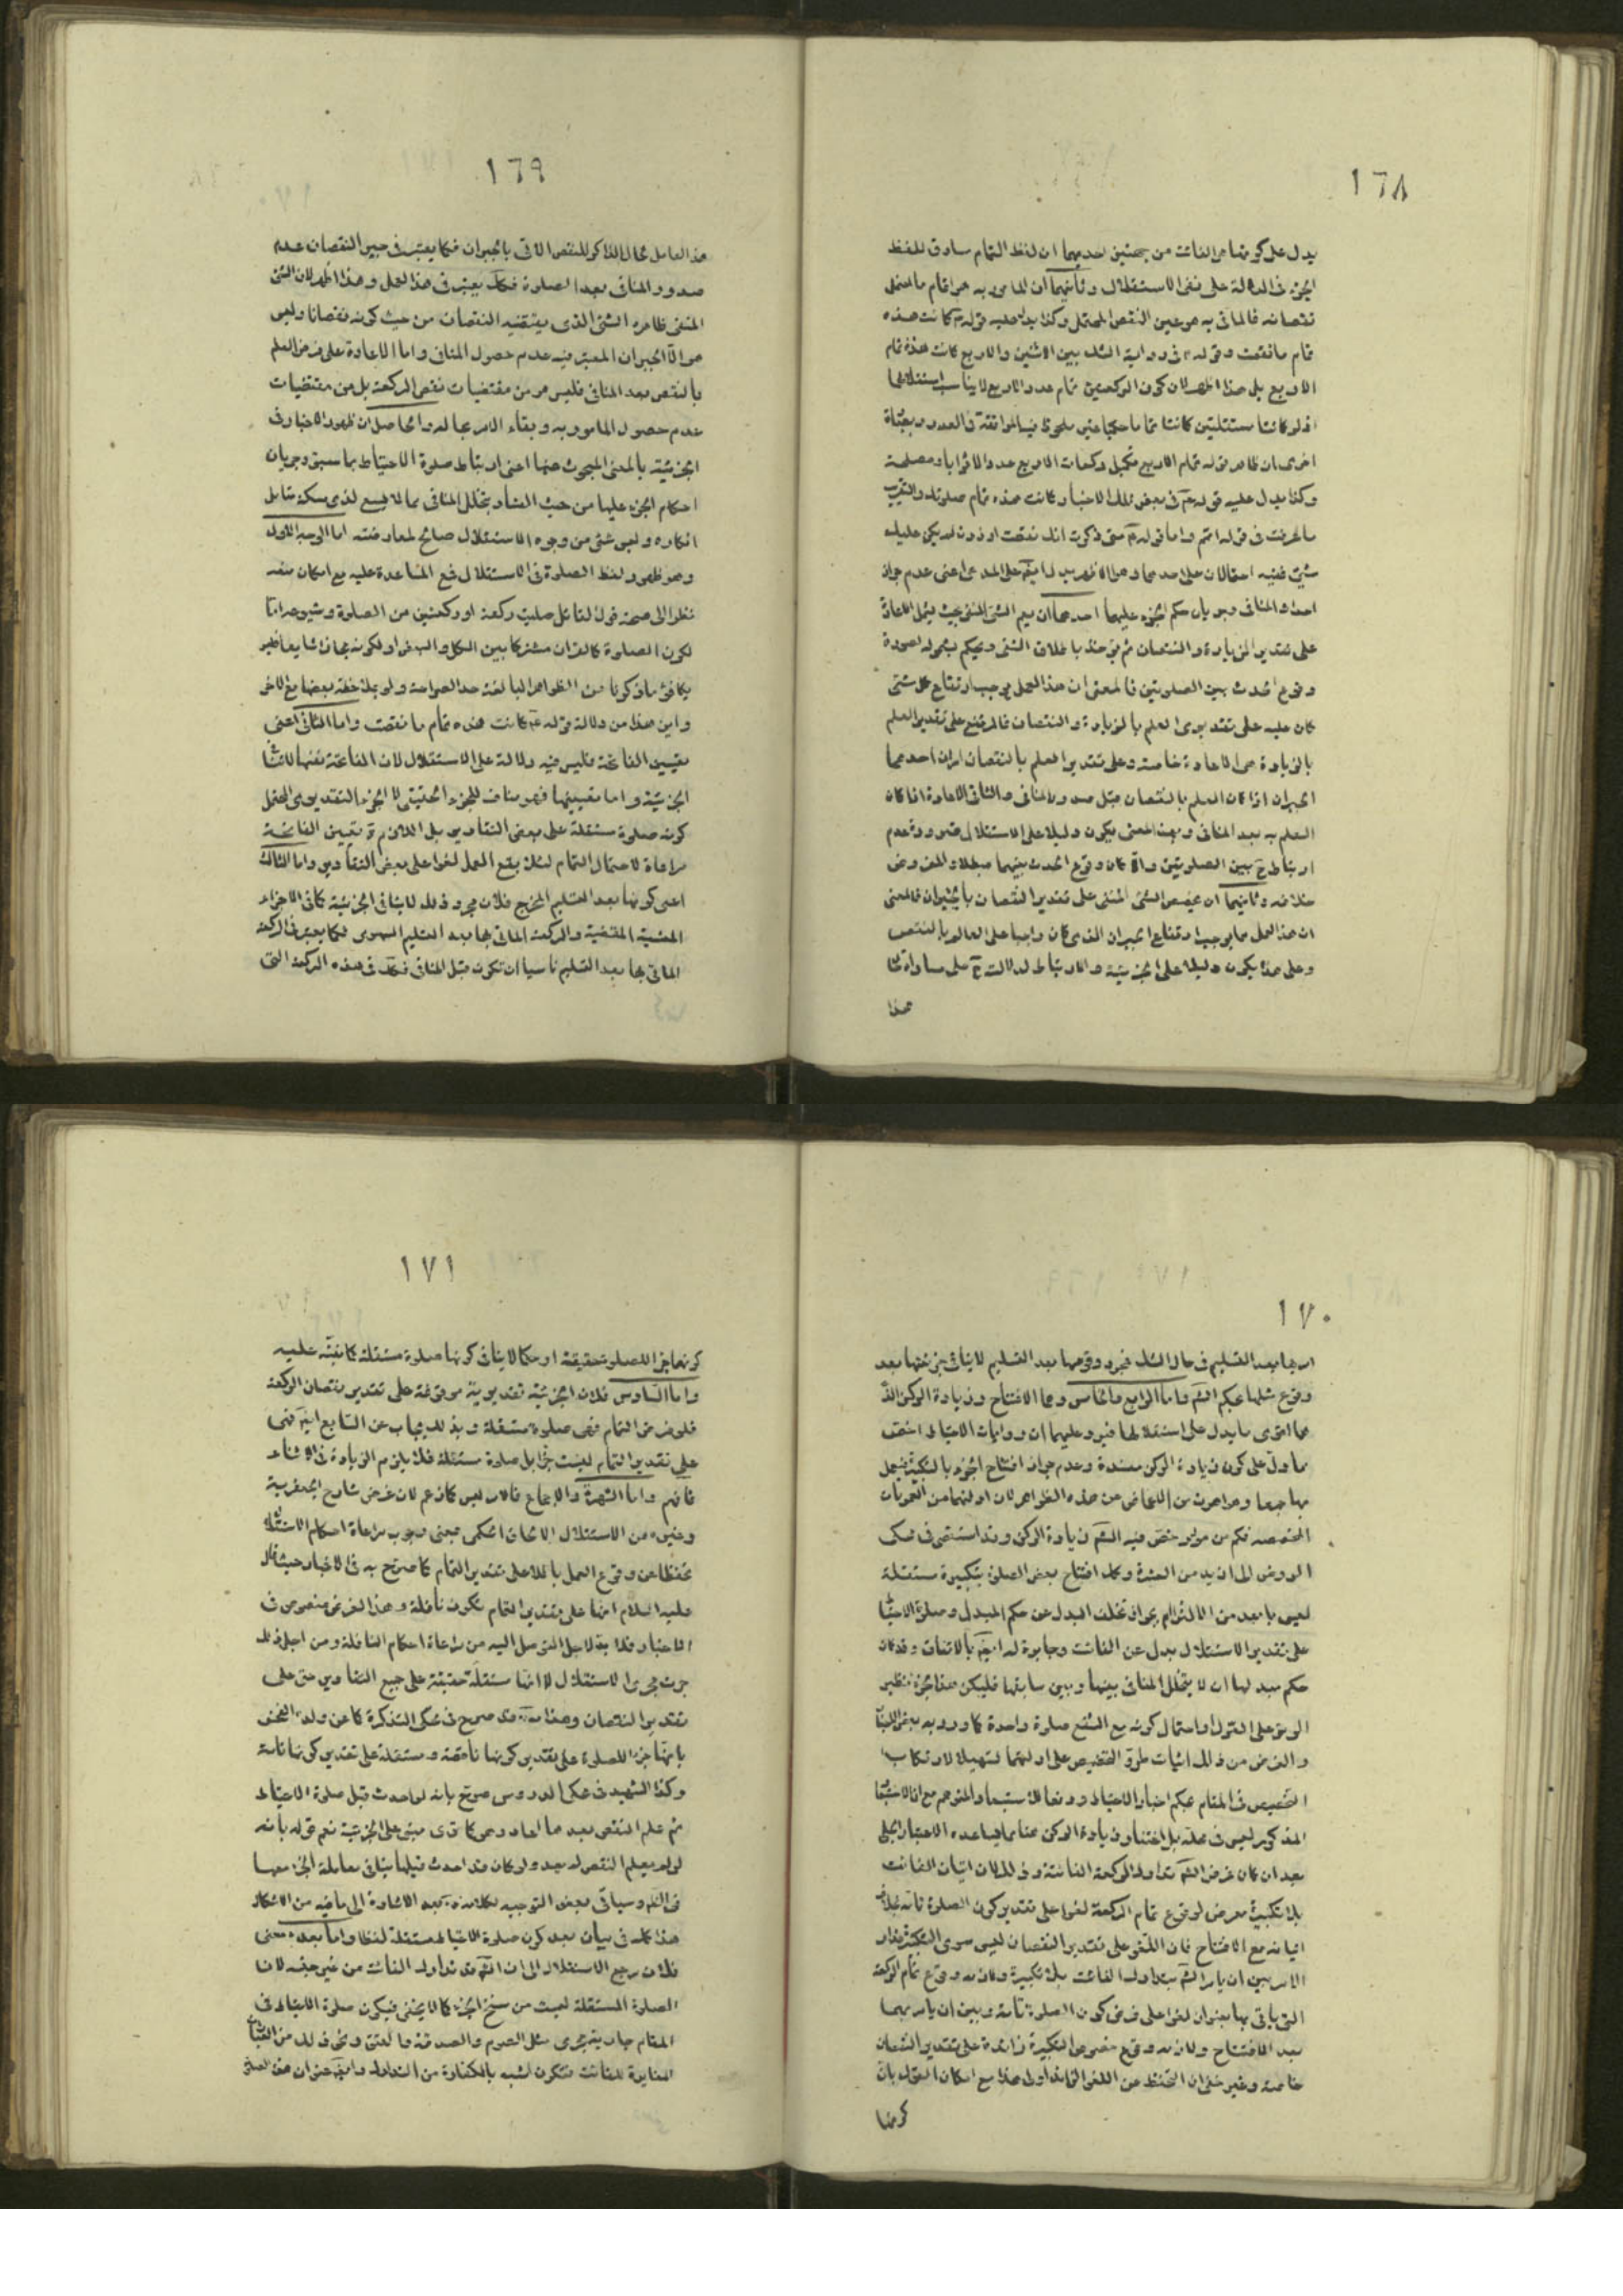 ١٦٨
يدل على كونها من الفائت من جهتين احديهما ان لفظ التمام ساوق للفظ
الجزء فى الدلالة على نفى الاستقلال وثانيهما ان المامور به هو اتمام ما احتمل
نقصانه فالماتى به هو عين النقص المحتمل وكذا يدل عليه قوله كانت هذه
تمام ما نقصت وقوله فى رواية الشك بين الاثنين والاربع كانت هذه تمام
الاربع بل هذا اظهر لان كون الركعتين تمام عدد الاربع لا يناسب استقلالهما
اذ لو كانتا مستقلتين كانتا تماما حكميا غير ملحوظ فيه الموافقة فى العدد وبعبارة
اخرى ان ظاهر قوله تمام الاربع تكميل ركعات الاربع عددا لا ثوابا ومصلحة
وكذا يدل عليه قوله فى بعض تلك الاخبار وكانت هذه تمام صلوتك والتقريب
ما عرفت فى قوله اتم واما قوله متى ذكرت انك نقصت او زدت لم يكن عليك
شىء ففيه احتمالان على احدهما وهو الاظهر يدل ايضا على المدعى اعنى عدم جواز
احداث المنافى وجريان حكم الجزء عليهما احدهما ان يعم الشىء المنفى بحيث يشمل الاعادة
على تقدير الزيادة والنقصان ثم يؤخذ باطلاق الشىء ويحكم بشموله لصورة
وقوع الحدث بين الصلوتين فالمعنى ان هذا العمل يوجب ارتفاع كل شىء
كان عليه على تقديرى العلم بالزيادة والنقصان فالمرتفع على تقدير العلم
بالزيادة هى الاعادة خاصة وعلى تقدير العلم بالنقصان امران احدهما
الجبران اذا كان العلم بالنقصان قبل صدور المنافى والثانى الاعادة اذا كان
العلم به بعد المنافى وبهذا المعنى يكون دليلا على الاستقلال ضرورة عدم
ارتباط ح بين الصلوتين والا كان وقوع الحدث بينهما مبطلا والمفروض
خلافه وثانيهما ان يخص الشىء المنفى على تقدير النقصان بالجبران فالمعنى
ان هذا العمل مما يوجب ارتفاع الجبران الذى كان واجبا على العالم بالنقص
وعلى هذا يكون دليلا على الجزئية والارتباط لدلالته ح على مساواة حال
هذا
١٦٩
هذا العامل لحال الذاكر للنقص الاتى بالجبران فكما يعتبر فى جبر النقصان عدم
صدور المنافى بعد الصلوة فكذلك يعتبر فى هذا العمل وهذا اظهر لان الشىء
المنفى ظاهره الشىء الذى يقتضيه النقصان من حيث كونه نقصانا وليس
هو الا الجبران المعتبر فيه عدم حصول المنافى واما الاعادة على فرض العلم
بالنقص بعد المنافى فليس هو من مقتضيات نقص الركعة بل من مقتضيات
عدم حصول المامور به وبقاء الامر بحاله والحاصل ان ظهور الاخبار فى
الجزئية بالمعنى المبحوث عنها اعنى ارتباط صلوة الاحتياط بما سبق وجريان
احكام الجزء عليها من حيث الفساد بتخلل المنافى مما لا يسع لذى مسكة متامل
انكاره وليس شىء من وجوه الاستقلال صالح لمعارضته اما الوجه الاول
وهو ظهور لفظ الصلوة فى الاستقلال فمع المساعدة عليه مع امكان منعه
نظرا الى صحة قول القائل صليت ركعة او ركعتين من الصلوة وشيوعه اما
لكون الصلوة كالقران مشتركا بين الكل والبعض او لكونه مجازا شايعا غير
يكافئ ما ذكرنا من الظواهر البالغة حد الصراحة ولو بملاحظة بعضها مع الاخر
واين هذا من دلالة قوله كانت هذه تمام ما نقصت واما الثانى اعنى
تعيين الفاتحة فليس فيه دلالة على الاستقلال لان الفاتحة نفيها لا ثباتها
الجزئية واما تعيينها فهو مناف للجزء الحقيقى لا الجزء التقديرى المحتمل
كونه صلوة مستقلة على بعض التقادير بل اللازم ح تعيين الفاتحة
مراعاة لاحتمال التمام لئلا يقع العمل لغوا على بعض التقادير واما الثالث
اعنى كونها بعد التسليم المخرج فلان مجرد ذلك لا ينافى الجزئية كما فى الاجزاء
المنسية المقضية والركعة الماتى بها بعد التسليم السهوى فكما يعتبر فى الركعة
الماتى بها بعد التسليم ناسيا ان تكون قبل المنافى فكذلك فى هذه الركعة التى
١٧٠
امر بها بعد التسليم فى حال الشك فمجرد وقوعها بعد التسليم لا ينافى جزئيتها بعد
وقوع مثلها بحكم الشرع واما الرابع والخامس وهما الافتتاح وزيادة الركن الذى
هما اقوى ما يدل على استقلالها فيرد عليهما ان روايات الاحتياط اخص
مما دل على كون زيادة الركن مفسدة وعدم جواز افتتاح الجزء بالتكبيرة فيعمل
بها جمعا وهو اهون من الاغماض عن هذه الظواهر لان اولهما من العمومات
المخصصة فكم من مورد خص فيه الشرع زيادة الركن وقد استقصى فى محكى
الروض الى ازيد من العشرة وكذا افتتاح بعض الصلوة بتكبيرة مستقلة
ليس بابعد من الالتزام بجواز تخلف البدل عن حكم المبدل وصلوة الاحتياط
على تقدير الاستقلال بدل عن الفائت وجابرة له ايضا بالاتفاق وقد كان
حكم مبدلها ان لا يتخلل المنافى بينها وبين سابقها فليكن هذا الجزء نظير
الوتر على القول او احتمال كونه مع الشفع صلوة واحدة كما ورد به بعض الاخبار
والغرض من ذلك اثبات طرق التخصيص على اولهما تسهيلا لارتكاب
التخصيص فى المقام بحكم اخبار الاحتياط ودفعا للاستبعاد المتوهم مع ان الاستبعاد
المذكور ليس فى محله بل اغتفار زيادة الركن هنا مما يساعده الاعتبار الجلى
بعد ان كان غرض الشرع تدارك الركعة الفائتة وذلك لان اتيان الفائت
بلا تكبيرة معرض لوقوع تمام الركعة لغوا على تقدير كون الصلوة تامة بخلاف
اتيانه مع الافتتاح فان اللغو على تقدير النقصان ليس سوى التكبيرة فدار
الامر بين ان يامر الشرع بتدارك الفائت بلا تكبيرة ولازمه وقوع تمام الركعة
التى ياتى بها بعنوان لغوا على فرض كون الصلوة تامة وبين ان يامر بهما
بعد الافتتاح ولازمه وقوع خصوص التكبيرة زائدة على تقدير النقصان
خاصة وغير خفى ان التحفظ عن اللغو الزائد اولى هذا مع امكان القول بان
كونها
١٧١
كونها جزءا للصلوة حقيقة او حكما لا ينافى كونها صلوة مستقلة كما نبه عليه
واما السادس فلان الجزئية تقديرية موقوفة على تقدير نقصان الركعة
فلو فرض التمام فهى صلوة مستقلة وبذلك يجاب عن السابع ايضا فهى
على تقدير التمام ليست جزءا بل صلوة مستقلة فلا يلزم الزيادة فى الاثناء
فافهم واما الشهرة والاجماع فالامر ليس كما زعم لان غرض شارح الجعفرية
وغيره من الاستقلال الاتحاد الحكمى بمعنى وجوب مراعاة احكام الاستقلال
تحفظا عن وقوع العمل باطلا على تقدير التمام كما صرح به فى الاخبار حيث قال
عليه السلام انها على تقدير التمام تكون نافلة وهذا الغرض منصوص فى
الاخبار فلا بد لاجل التوصل اليه من مراعاة احكام النافلة ومن اجل ذلك
جرت مجرى الاستقلال لا انها مستقلة حقيقة على جميع التقادير حتى على
تقدير النقصان وهذا قد صرح فى محكى التذكرة كما عن ولده الفخر
بانها جزء للصلوة على تقدير كونها ناقصة ومستقلة على تقدير كونها تامة
وكذا الشهيد فى محكى الدروس صرح بانه لو احدث قبل صلوة الاحتياط
ثم علم النقص بعدها اعاد وهو كما ترى مبنى على الجزئية نعم قوله بانه
لو لم يعلم النقص لم يعد ولو كان قد احدث قبلها ينافى معاملة الجزء معها
فى النظر وسياتى بعض التوجيه لكلامه بعد الاشارة الى ما فيه من الاشكال
هذا كله فى بيان بعد كون صلوة الاحتياط مستقلة لفظا واما بعده معنى
فلان مرجع الاستقلال الى ان الشرع قد تدارك الفائت من غير جنسه لان
الصلوة المستقلة ليست من سنخ الجزء كما لا يخفى فيكون صلوة الاحتياط فى
المقام جارية مجرى مثل الصوم والصدقة والعتق ونحو ذلك من العبادات
المغايرة للفائت فتكون اشبه بالكفارة من التدارك وايضا عنوان هذه الصلوة